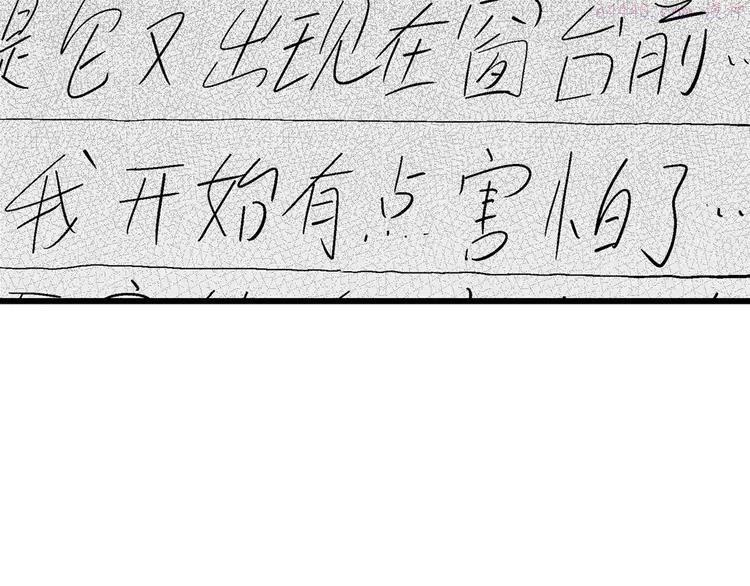 是它又出现在窗台前..
我开始有点害怕了..